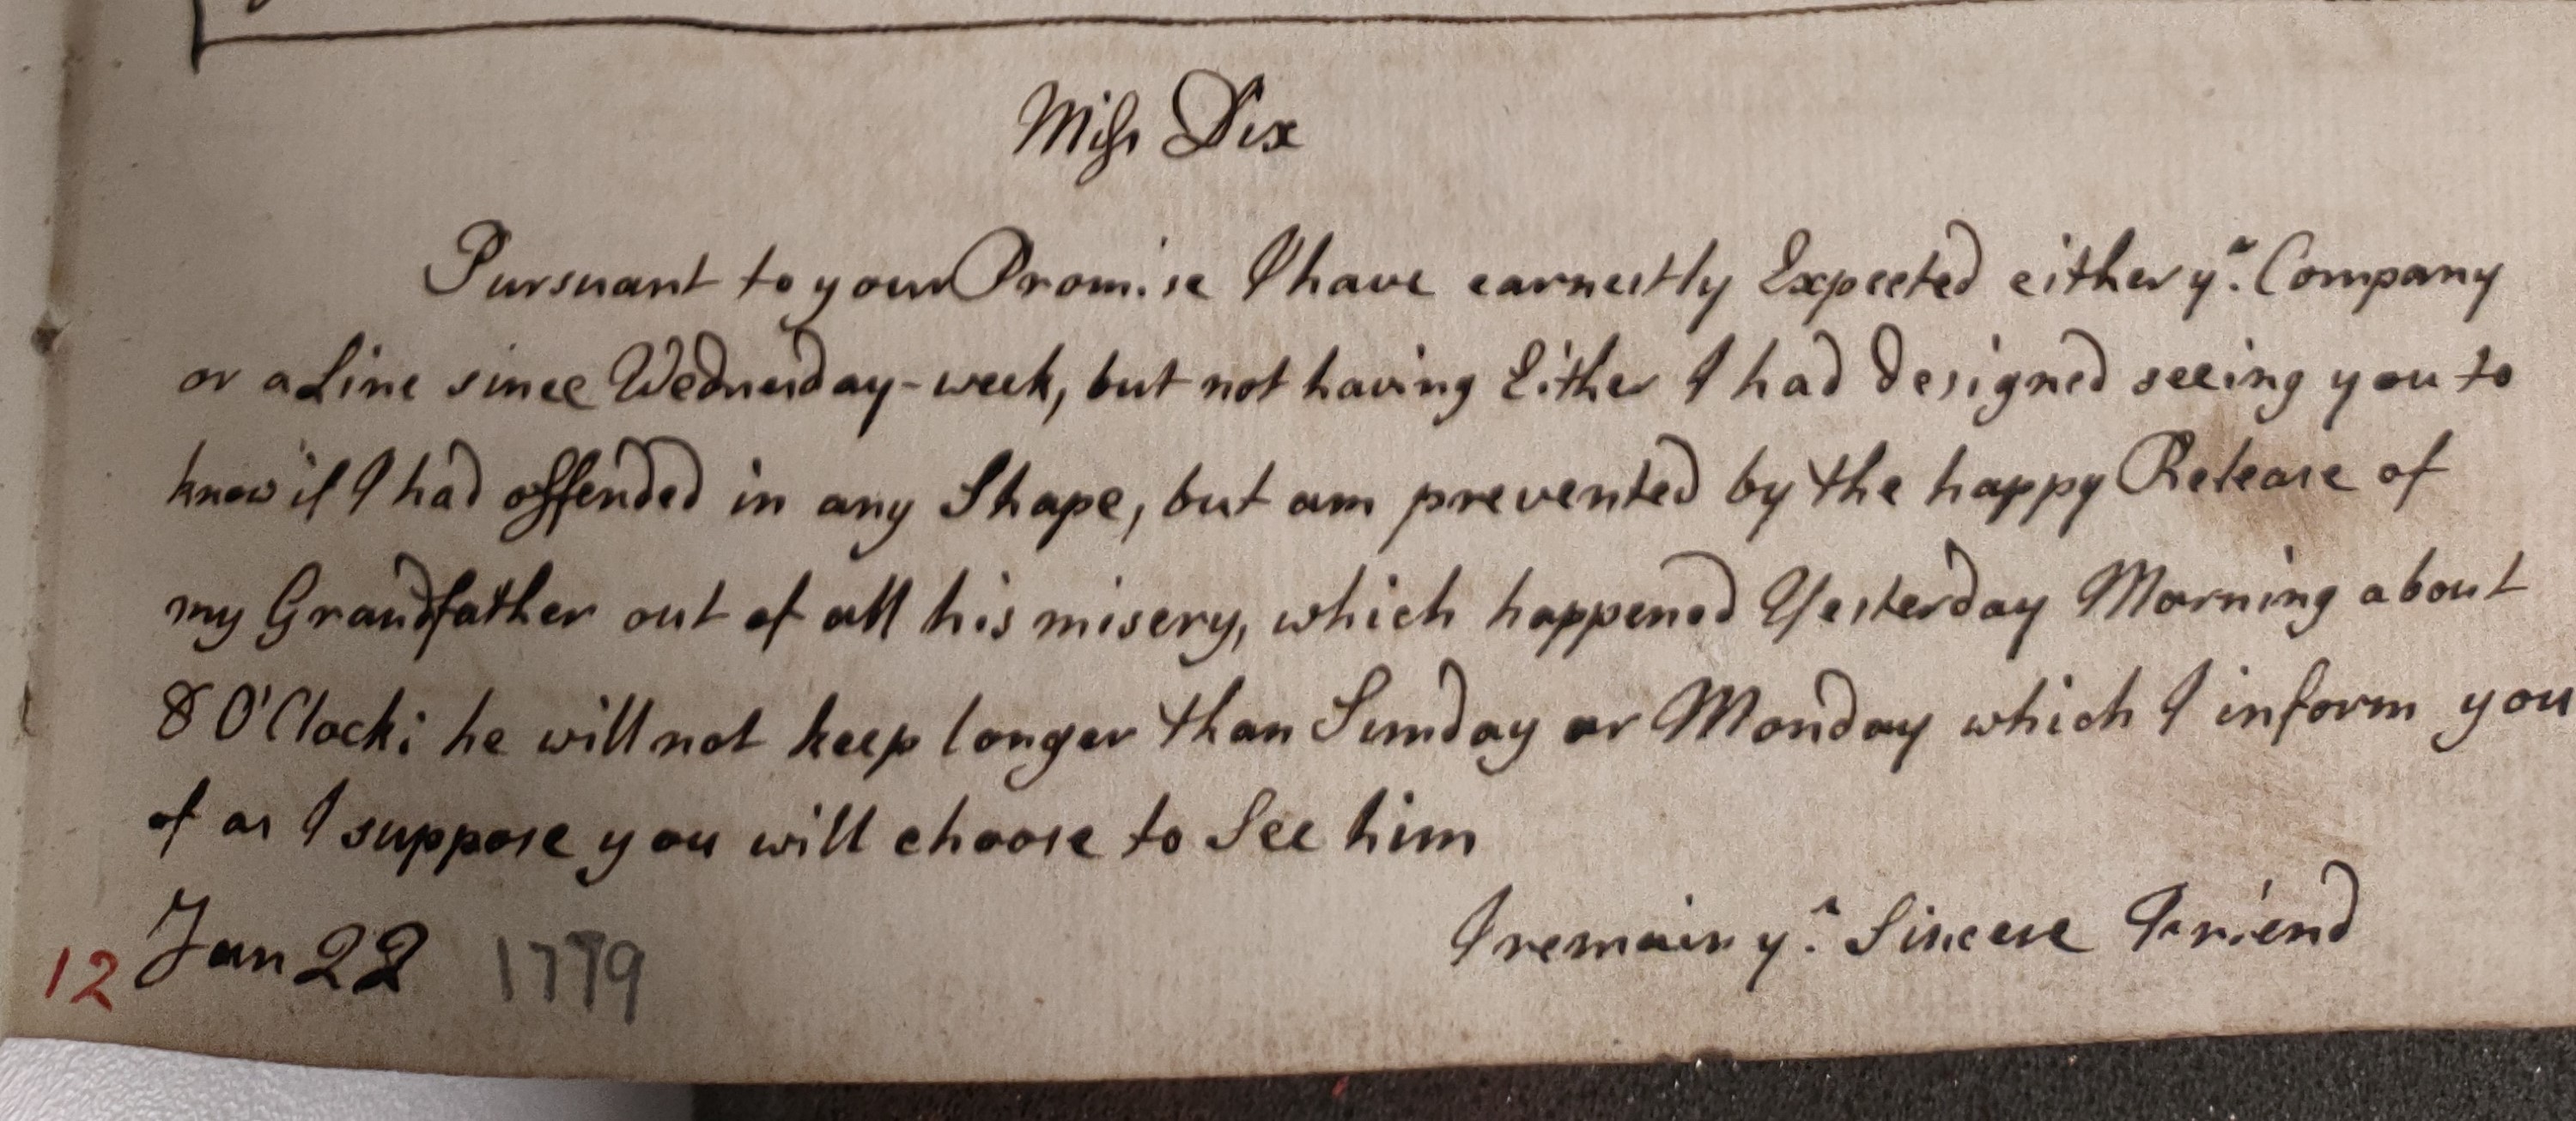 Miss Dix
Pursuant to your Promise I have earnestly Expected either yr. Company
or a Line since Wednesday-week, but not having Either I had Designed seeing you to
know if I had offended in any Shape, but am prevented by the happy Release of
my Grandfather out of all his misery, which happened Yesterday Morning about
8 O'Clock; he will not keep longer than Sunday or Monday which I inform you
of as I suppose you will choose to See him
I remain yr. Sincere Friend
12 Jan 22 1779